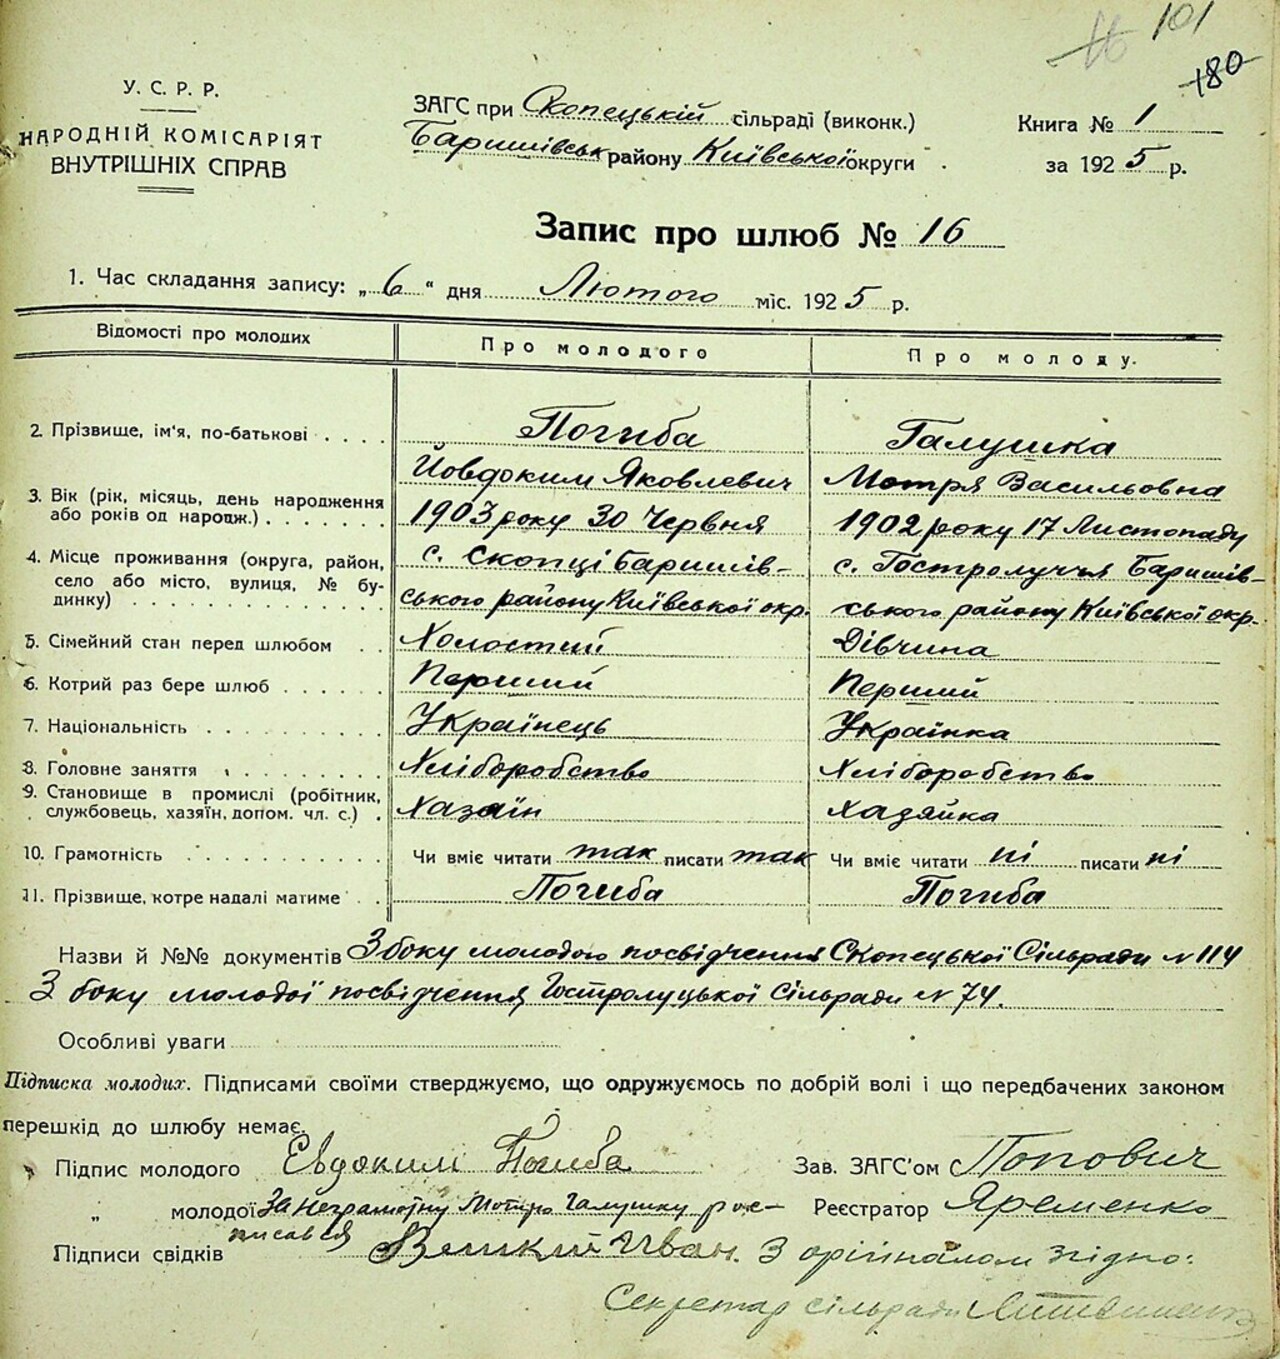 16 101
180
У. С. Р. Р.
НАРОДНІЙ КОМІСАРІЯТ
ВНУТРІШНІХ СПРАВ
ЗАГС при Скопецькій сільраді (виконк.)
Баришівськ району Київської округи
Книга № 1
за 1925 р.
Запис про шлюб № 16
1. Час складання запису: „6“ дня Лютого міс. 1925 р.
Відомості про молодих
Про молодого
Про молоду.
2. Прізвище, ім'я, по-батькові . . . .
Погиба
Йовдоким Яковлевич
Галушка
Мотря Васильовна
3. Вік (рік, місяць, день народження
або років од народж.) . . . . . . .
1903 року 30 Червня
1902 року 17 Листопаду
4. Місце проживання (округа, район,
село або місто, вулиця, № бу-
динку) . . . . . . . . . . . . . .
с. Скопці Баришів-
ського району Київської окр.
с. Гостролуччя Баришів-
ського району Київської окр.
5. Сімейний стан перед шлюбом . .
Холостий
Дівчина
6. Котрий раз бере шлюб . . . . . .
Перший
Перший
7. Національність . . . . . . . . . .
Українець
Українка
8. Головне заняття . . . . . . . . .
Хліборобство
Хліборобство
9. Становище в промислі (робітник,
службовець, хазяїн, допом. чл. с.) .
Хазаїн
Хазяйка
10. Грамотність . . . . . . . . . . .
Чи вміє читати так писати так
Чи вміє читати ні писати ні
11. Прізвище, котре надалі матиме . .
Погиба
Погиба
Назви й №№ документів З боку молодого посвідчення Скопецької Сільради № 114
З боку молодої посвідчення Гостролуцької Сільради № 74.
Особливі уваги
Підписка молодих. Підписами своїми стверджуємо, що одружуємось по добрій волі і що передбачених законом
перешкід до шлюбу немає.
Підпис молодого Евдоким Погиба
Зав. ЗАГС'ом Попович
„ молодої За неграмотну Мотрю Галушку рос-
писався
Реєстратор Яременко
Підписи свідків Великий Иван.
З орігіналом згідно:
Секретар сільради